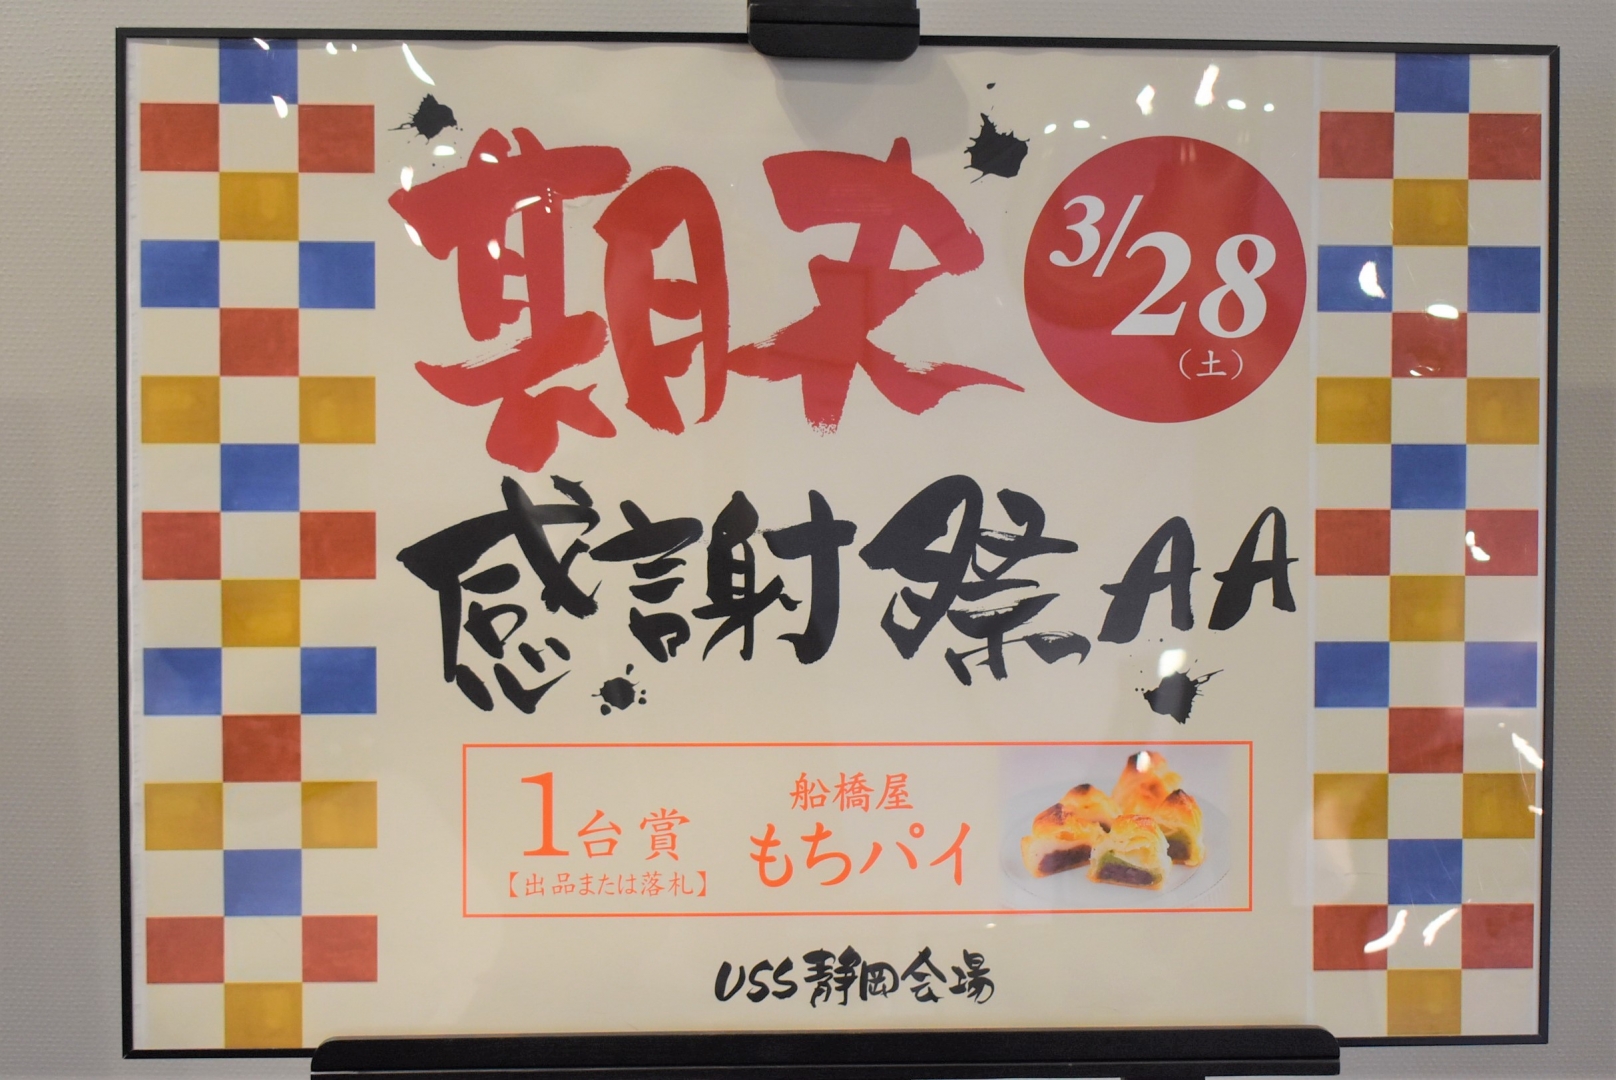 期末
3/28
（土）
感謝祭AA
1台賞
【出品または落札】
船橋屋
もちパイ
USS静岡会場